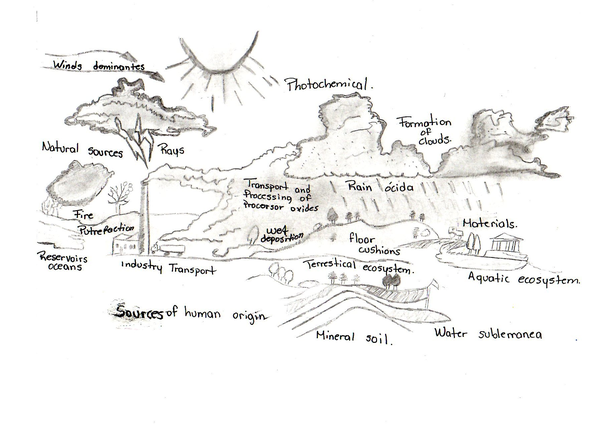 Winds dominantes
Photochemical.
Formation
of
clouds.
Natural sources
Rays
Transport and
Processing of
Procersor oxides
Rain ácida
Fire
Putrefaction
wet
deposition
floor
cushions
Materials.
Reservoirs
oceans
Industry Transport
Terrestical ecosystem.
Aquatic ecosystem.
Sources of human origin
Mineral soil.
Water sublemanea